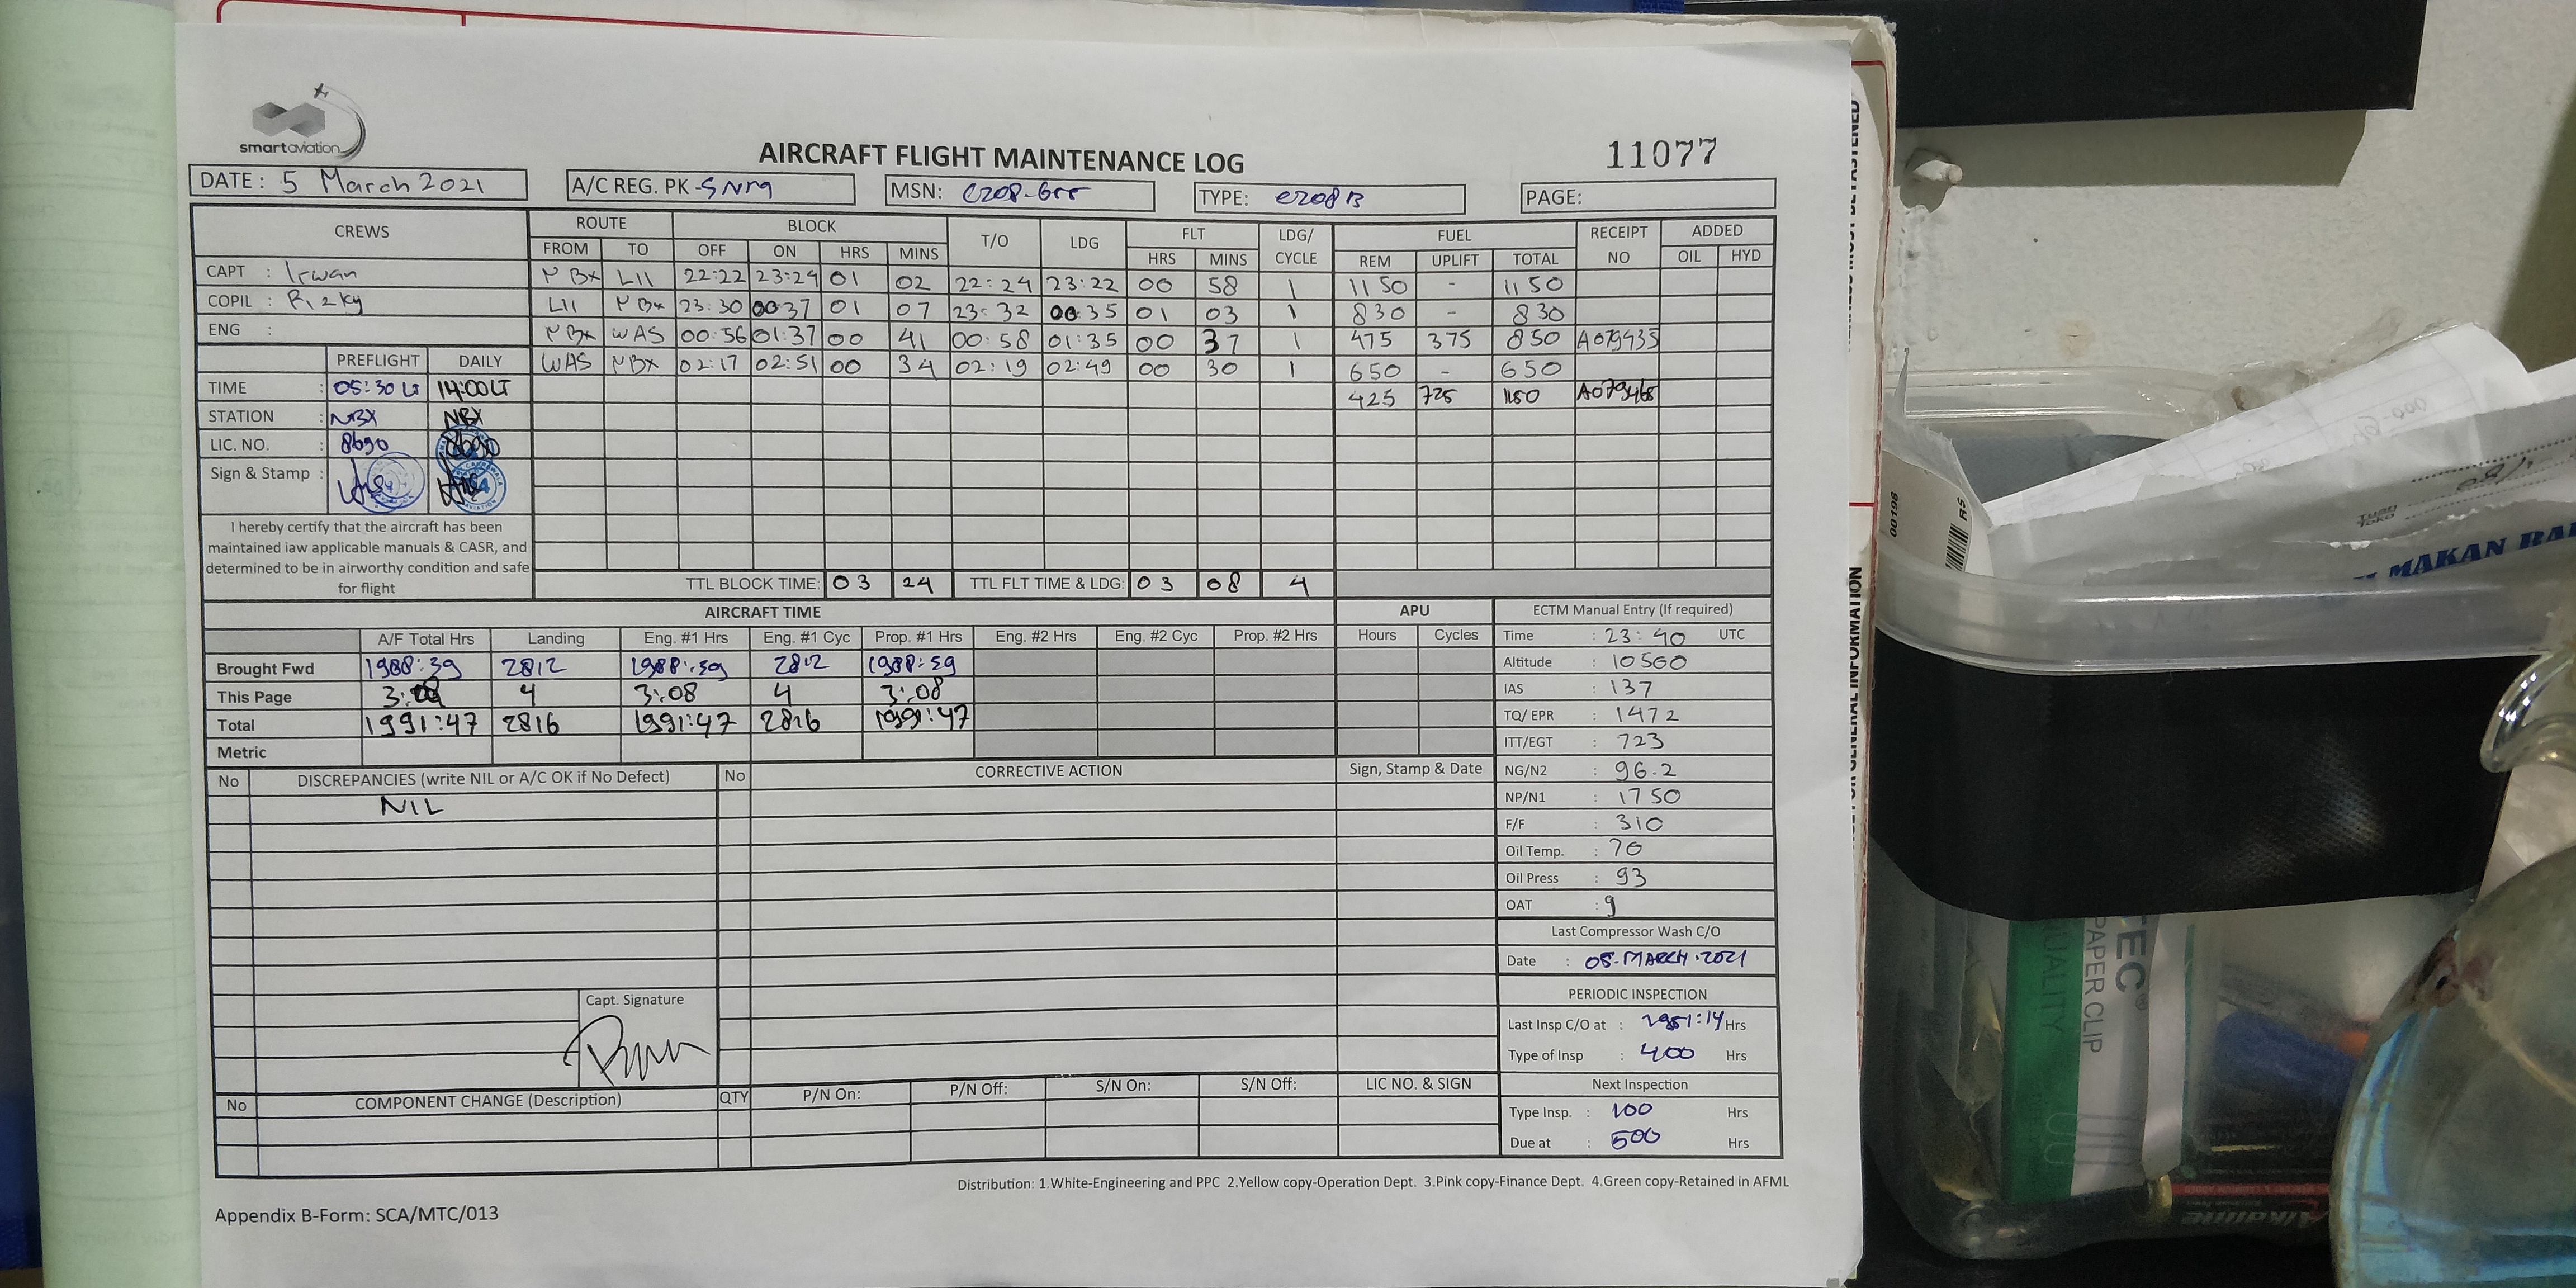 smartaviation
AIRCRAFT FLIGHT MAINTENANCE LOG
11077
DATE: 5 March 2021
A/C REG. PK-SNM
MSN:
TYPE: C208B
PAGE:
CREWS ROUTE BLOCK T/O LDG FLT LDG/CYCLE FUEL RECEIPT NO ADDED
FROM TO OFF ON HRS MINS HRS MINS REM UPLIFT TOTAL OIL HYD
CAPT : Irwan NBX LII 22:22 23:24 01 02 22:24 23:22 00 58 1 1150 - 1150
COPIL : Rizky LII NBX 23:30 00:37 01 07 23:32 00:35 01 03 1 830 - 830
ENG : NBX WAS 00:56 01:37 00 41 00:58 01:35 00 37 1 475 375 850 A079435
PREFLIGHT DAILY WAS NBX 02:17 02:51 00 34 02:19 02:49 00 30 1 650 - 650
TIME : 05:30 LT 14:00 LT 425 725 1150
STATION : NBX NBX
LIC. NO. : 8690 8690
Sign & Stamp :
I hereby certify that the aircraft has been
maintained iaw applicable manuals & CASR, and
determined to be in airworthy condition and safe
for flight
TTL BLOCK TIME: 03 24 TTL FLT TIME & LDG: 03 08 4
AIRCRAFT TIME APU
A/F Total Hrs Landing Eng. #1 Hrs Eng. #1 Cyc Prop. #1 Hrs Eng. #2 Hrs Eng. #2 Cyc Prop. #2 Hrs Hours Cycles
Brought Fwd 1988:39 2812 1988:39 2812 1988:39
This Page 3:08 4 3:08 4 3:08
Total 1991:47 2816 1991:47 2816 1991:47
Metric
ECTM Manual Entry (If required)
Time : 23:40 UTC
Altitude : 10560
IAS : 137
TQ/ EPR : 1472
ITT/EGT : 723
NG/N2 : 96.2
NP/N1 : 1750
F/F : 310
Oil Temp. : 70
Oil Press : 93
OAT : 9
Last Compressor Wash C/O
Date : 05-MARCH-2021
PERIODIC INSPECTION
Last Insp C/O at : 1951:14 Hrs
Type of Insp : 400 Hrs
Next Inspection
Type Insp. : 100 Hrs
Due at : 500 Hrs
No DISCREPANCIES (write NIL or A/C OK if No Defect) No CORRECTIVE ACTION Sign, Stamp & Date
NIL
Capt. Signature
No COMPONENT CHANGE (Description) QTY P/N On: P/N Off: S/N On: S/N Off: LIC NO. & SIGN
Distribution: 1.White-Engineering and PPC 2.Yellow copy-Operation Dept. 3.Pink copy-Finance Dept. 4.Green copy-Retained in AFML
Appendix B-Form: SCA/MTC/013
GENERAL INFORMATION
00198
RS
TUAN
TOKO
MAKAN
PAPER CLIP
QUALITY
Alkaline